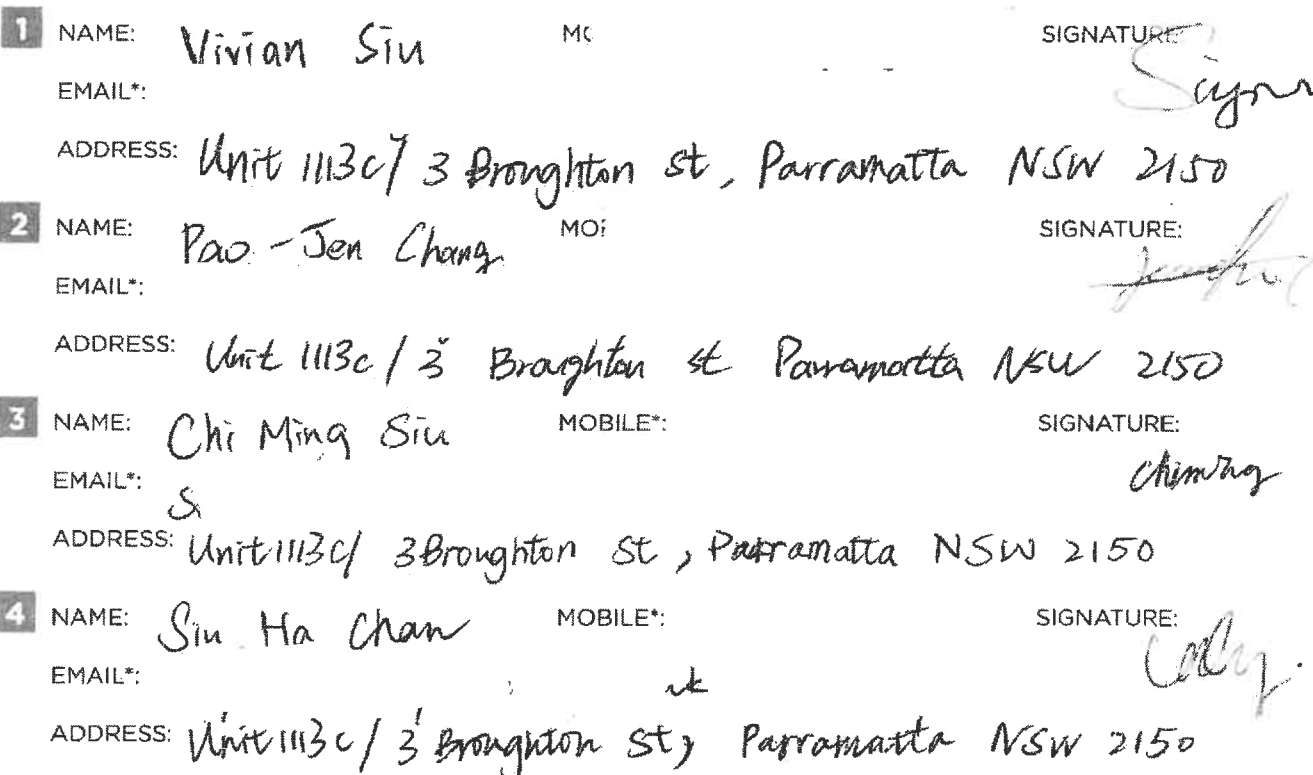 1 NAME: Vivian Siu MO SIGNATURE:
EMAIL*:
ADDRESS: Unit 1113c/ 3 Broughton st, Parramatta NSW 2150
2 NAME: Pao-Jen Chang MO SIGNATURE:
EMAIL*:
ADDRESS: Unit 1113c / 3 Broughton st Parramatta NSW 2150
3 NAME: Chi Ming Siu MOBILE*: SIGNATURE:
EMAIL*: chiming
ADDRESS: Unit 1113c/ 3 Broughton St, Parramatta NSW 2150
4 NAME: Siu Ha Chan MOBILE*: SIGNATURE:
EMAIL*:
ADDRESS: Unit 1113c / 3 Broughton St, Parramatta NSW 2150